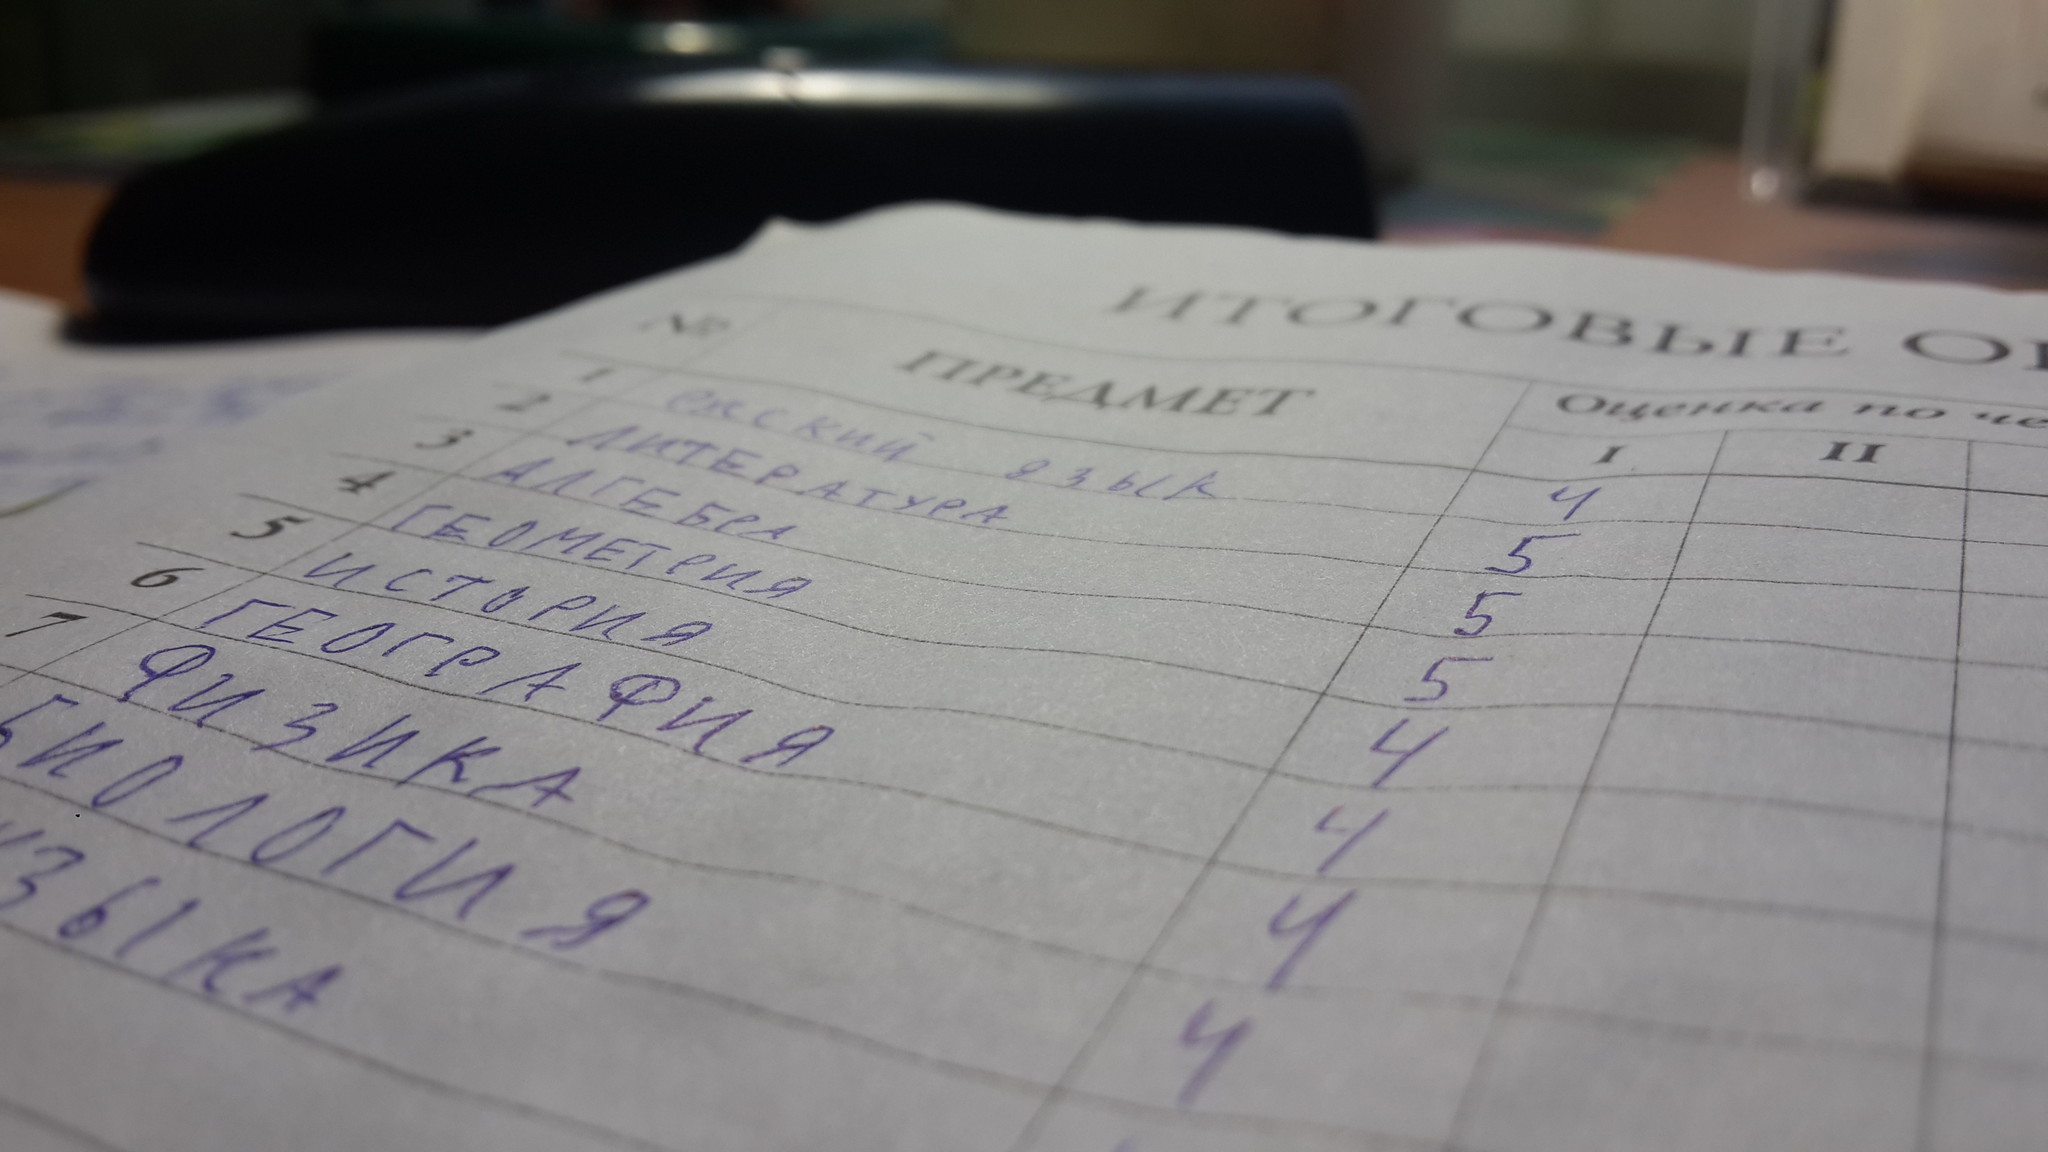 ИТОГОВЫЕ
№ ПРЕДМЕТ Оценка по
I II
1 язык 4
2 ЛИТЕРАТУРА 5
3 АЛГЕБРА 5
4 ГЕОМЕТРИЯ 5
5 ИСТОРИЯ 4
6 ГЕОГРАФИЯ 4
7 ФИЗИКА 4
БИОЛОГИЯ 4
УЗЫКА